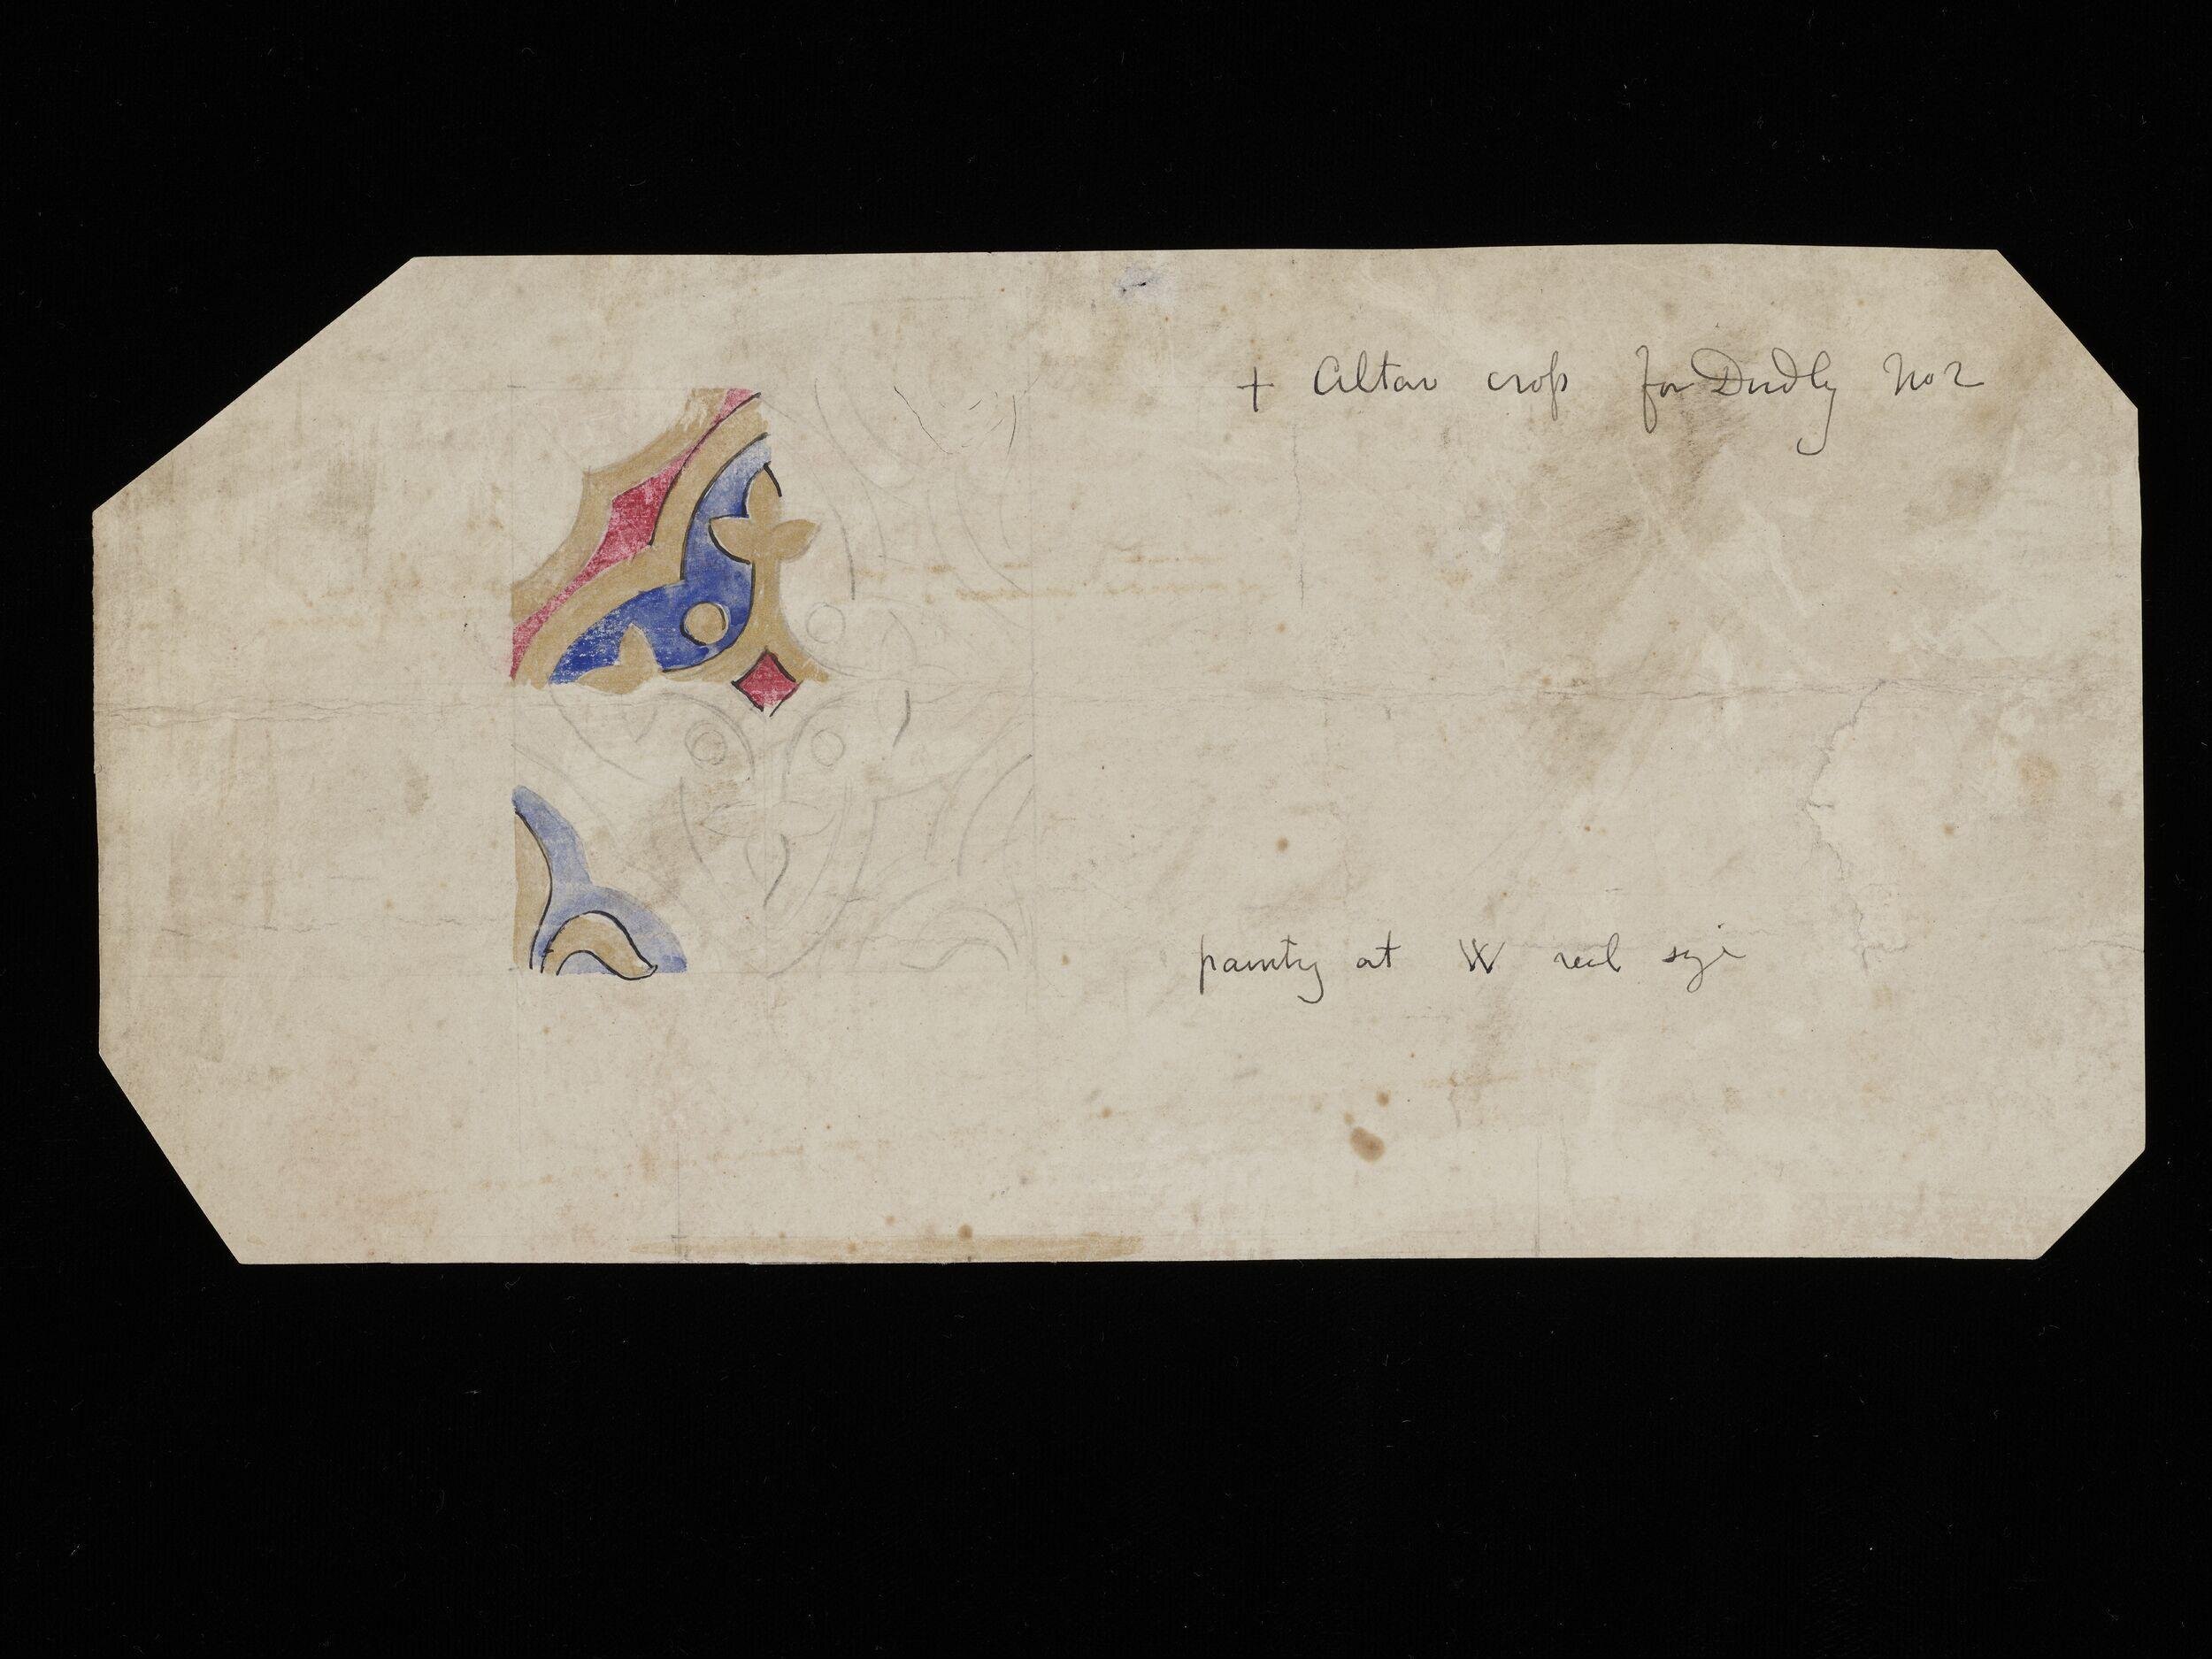 + Altar cross for Dudly No 2
painting at W real size